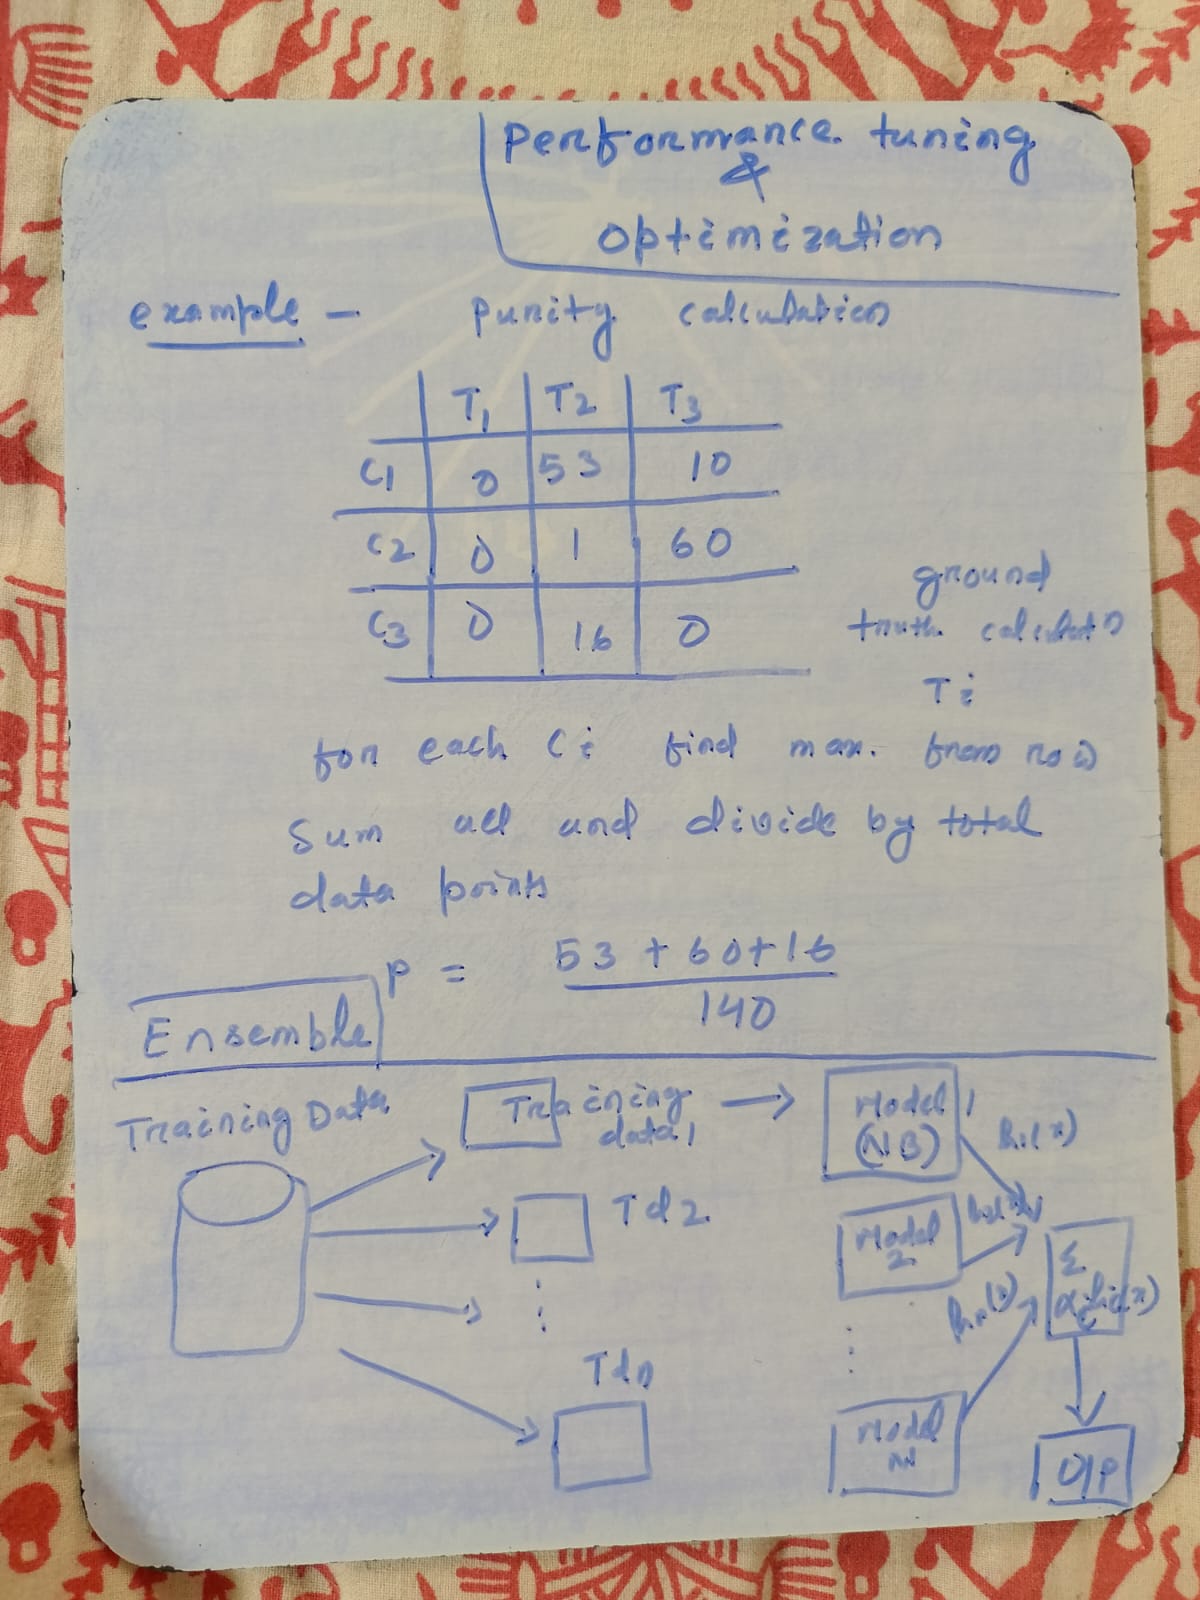 Performance tuning
&
optimization
example - Purity calculation
T1 T2 T3
C1 0 53 10
C2 0 1 60
C3 0 16 0
ground
truth
Ti
for each Ci find max. from row
Sum all and divide by total
data points
P = 53 + 60 + 16
140
Ensemble
Training Data
Training
data1
Model 1
(NB)
h1(x)
Td2
Model
2
hn(x)
Σ
αi hi(x)
Tdn
Model
O/P